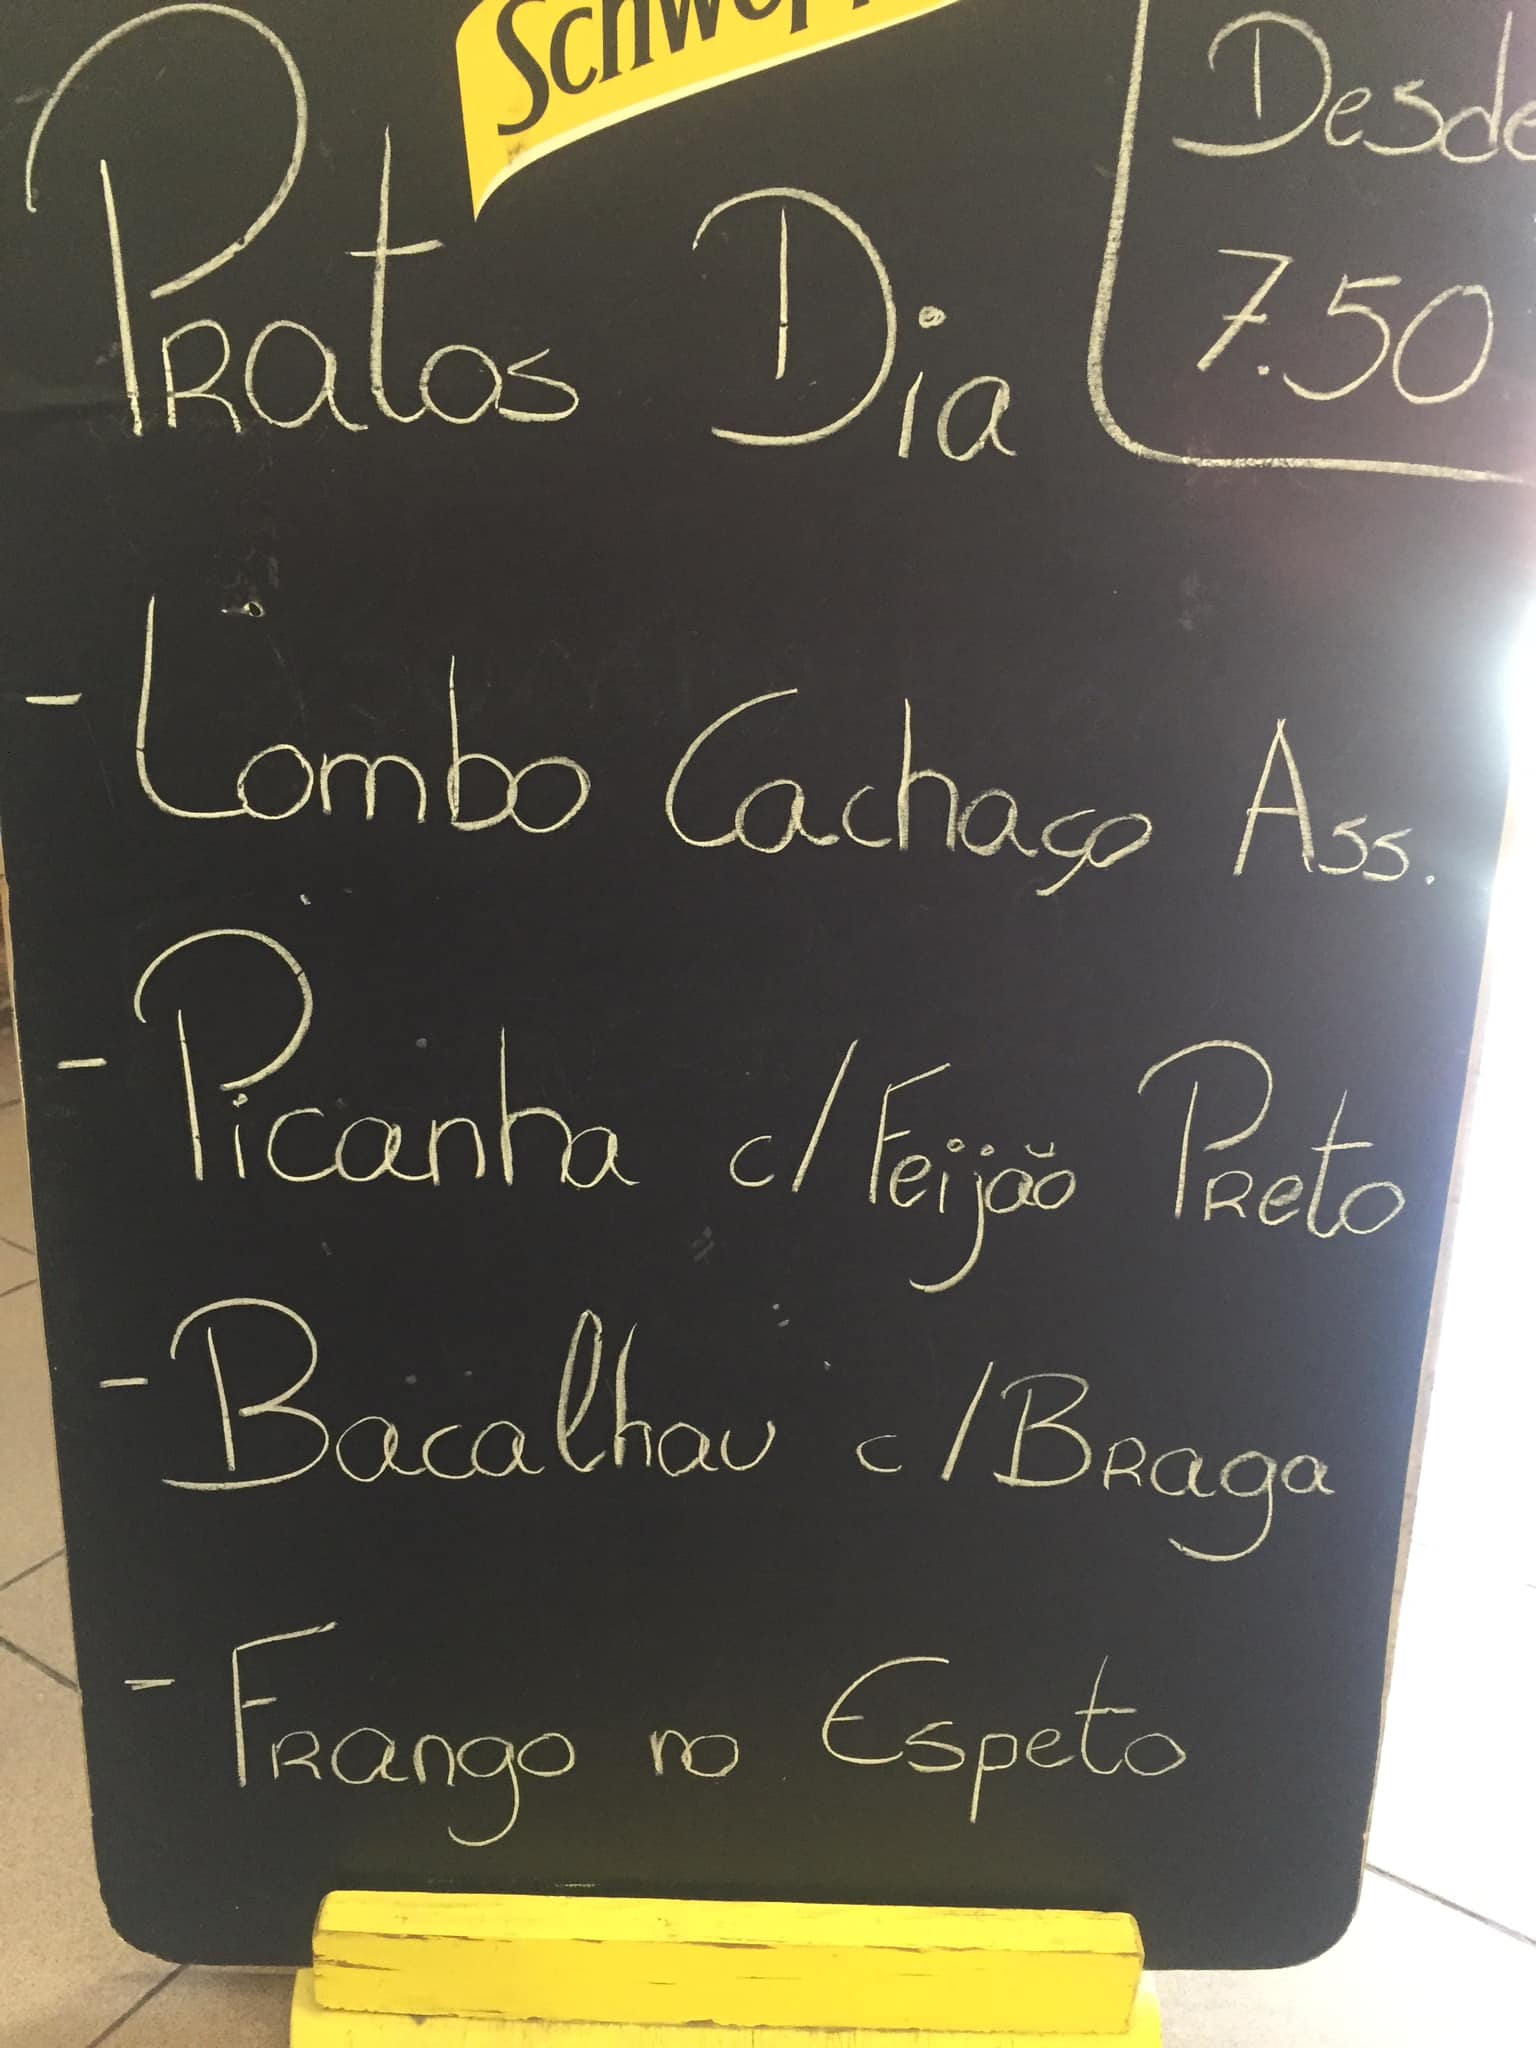 Schwepp
Desde
7.50
Pratos Dia
- Lombo Cachaço Ass.
- Picanha c/ Feijão Preto
- Bacalhau c/ Braga
- Frango no Espeto